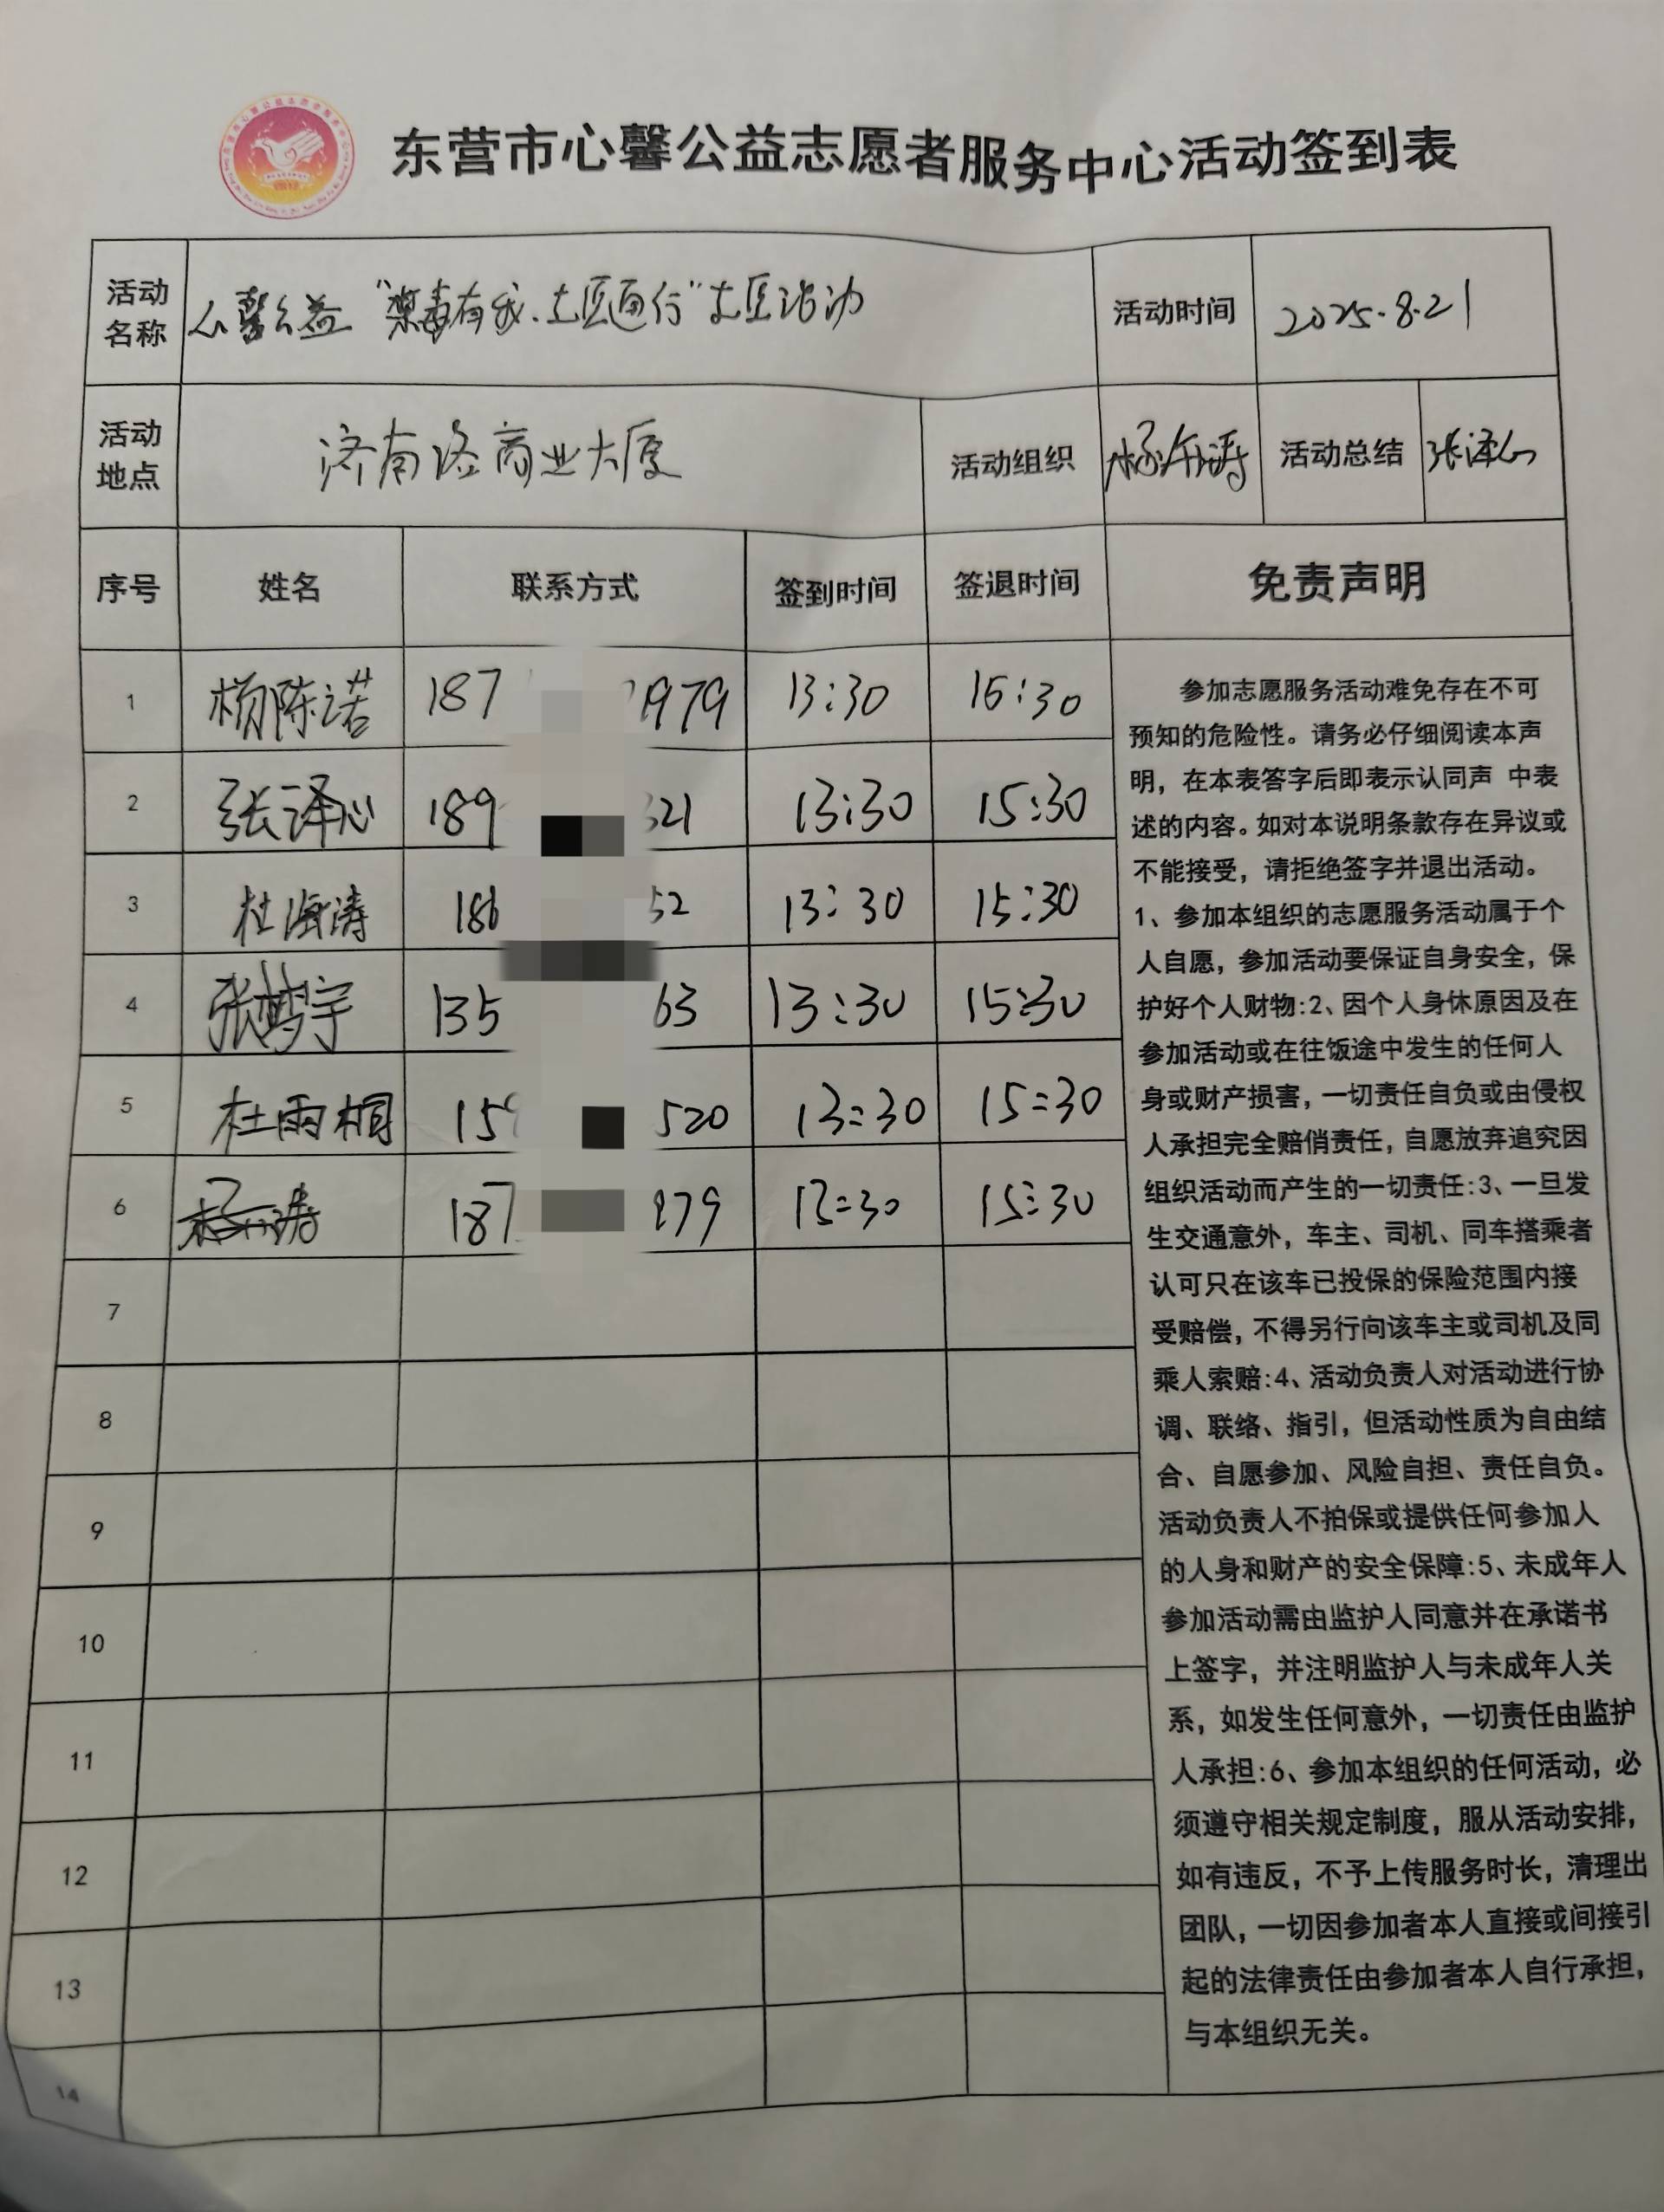 东营市心馨公益志愿者服务中心活动签到表
活动名称 心馨公益“禁毒有我、志愿同行”志愿活动 活动时间 2025.8.21
活动地点 济南路商业大厦 活动组织 活动总结 张泽心
序号 姓名 联系方式 签到时间 签退时间 免责声明
1 杨陈诺 187 1979 13:30 15:30
2 张泽心 189 321 13:30 15:30
3 杜海涛 186 52 13:30 15:30
4 张梦宇 135 63 13:30 15:30
5 杜雨桐 159 520 13:30 15:30
6 187 979 13:30 15:30
7
8
9
10
11
12
13
14
参加志愿服务活动难免存在不可
预知的危险性。请务必仔细阅读本声
明，在本表答字后即表示认同声 中表
述的内容。如对本说明条款存在异议或
不能接受，请拒绝签字并退出活动。
1、参加本组织的志愿服务活动属于个
人自愿，参加活动要保证自身安全，保
护好个人财物:2、因个人身休原因及在
参加活动或在往饭途中发生的任何人
身或财产损害，一切责任自负或由侵权
人承担完全赔俏责任，自愿放弃追究因
组织活动而产生的一切责任:3、一旦发
生交通意外，车主、司机、同车搭乘者
认可只在该车已投保的保险范围内接
受赔偿，不得另行向该车主或司机及同
乘人索赔:4、活动负责人对活动进行协
调、联络、指引，但活动性质为自由结
合、自愿参加、风险自担、责任自负。
活动负责人不拍保或提供任何参加人
的人身和财产的安全保障:5、未成年人
参加活动需由监护人同意并在承诺书
上签字，并注明监护人与未成年人关
系，如发生任何意外，一切责任由监护
人承担:6、参加本组织的任何活动，必
须遵守相关规定制度，服从活动安排，
如有违反，不予上传服务时长，清理出
团队，一切因参加者本人直接或间接引
起的法律责任由参加者本人自行承担，
与本组织无关。